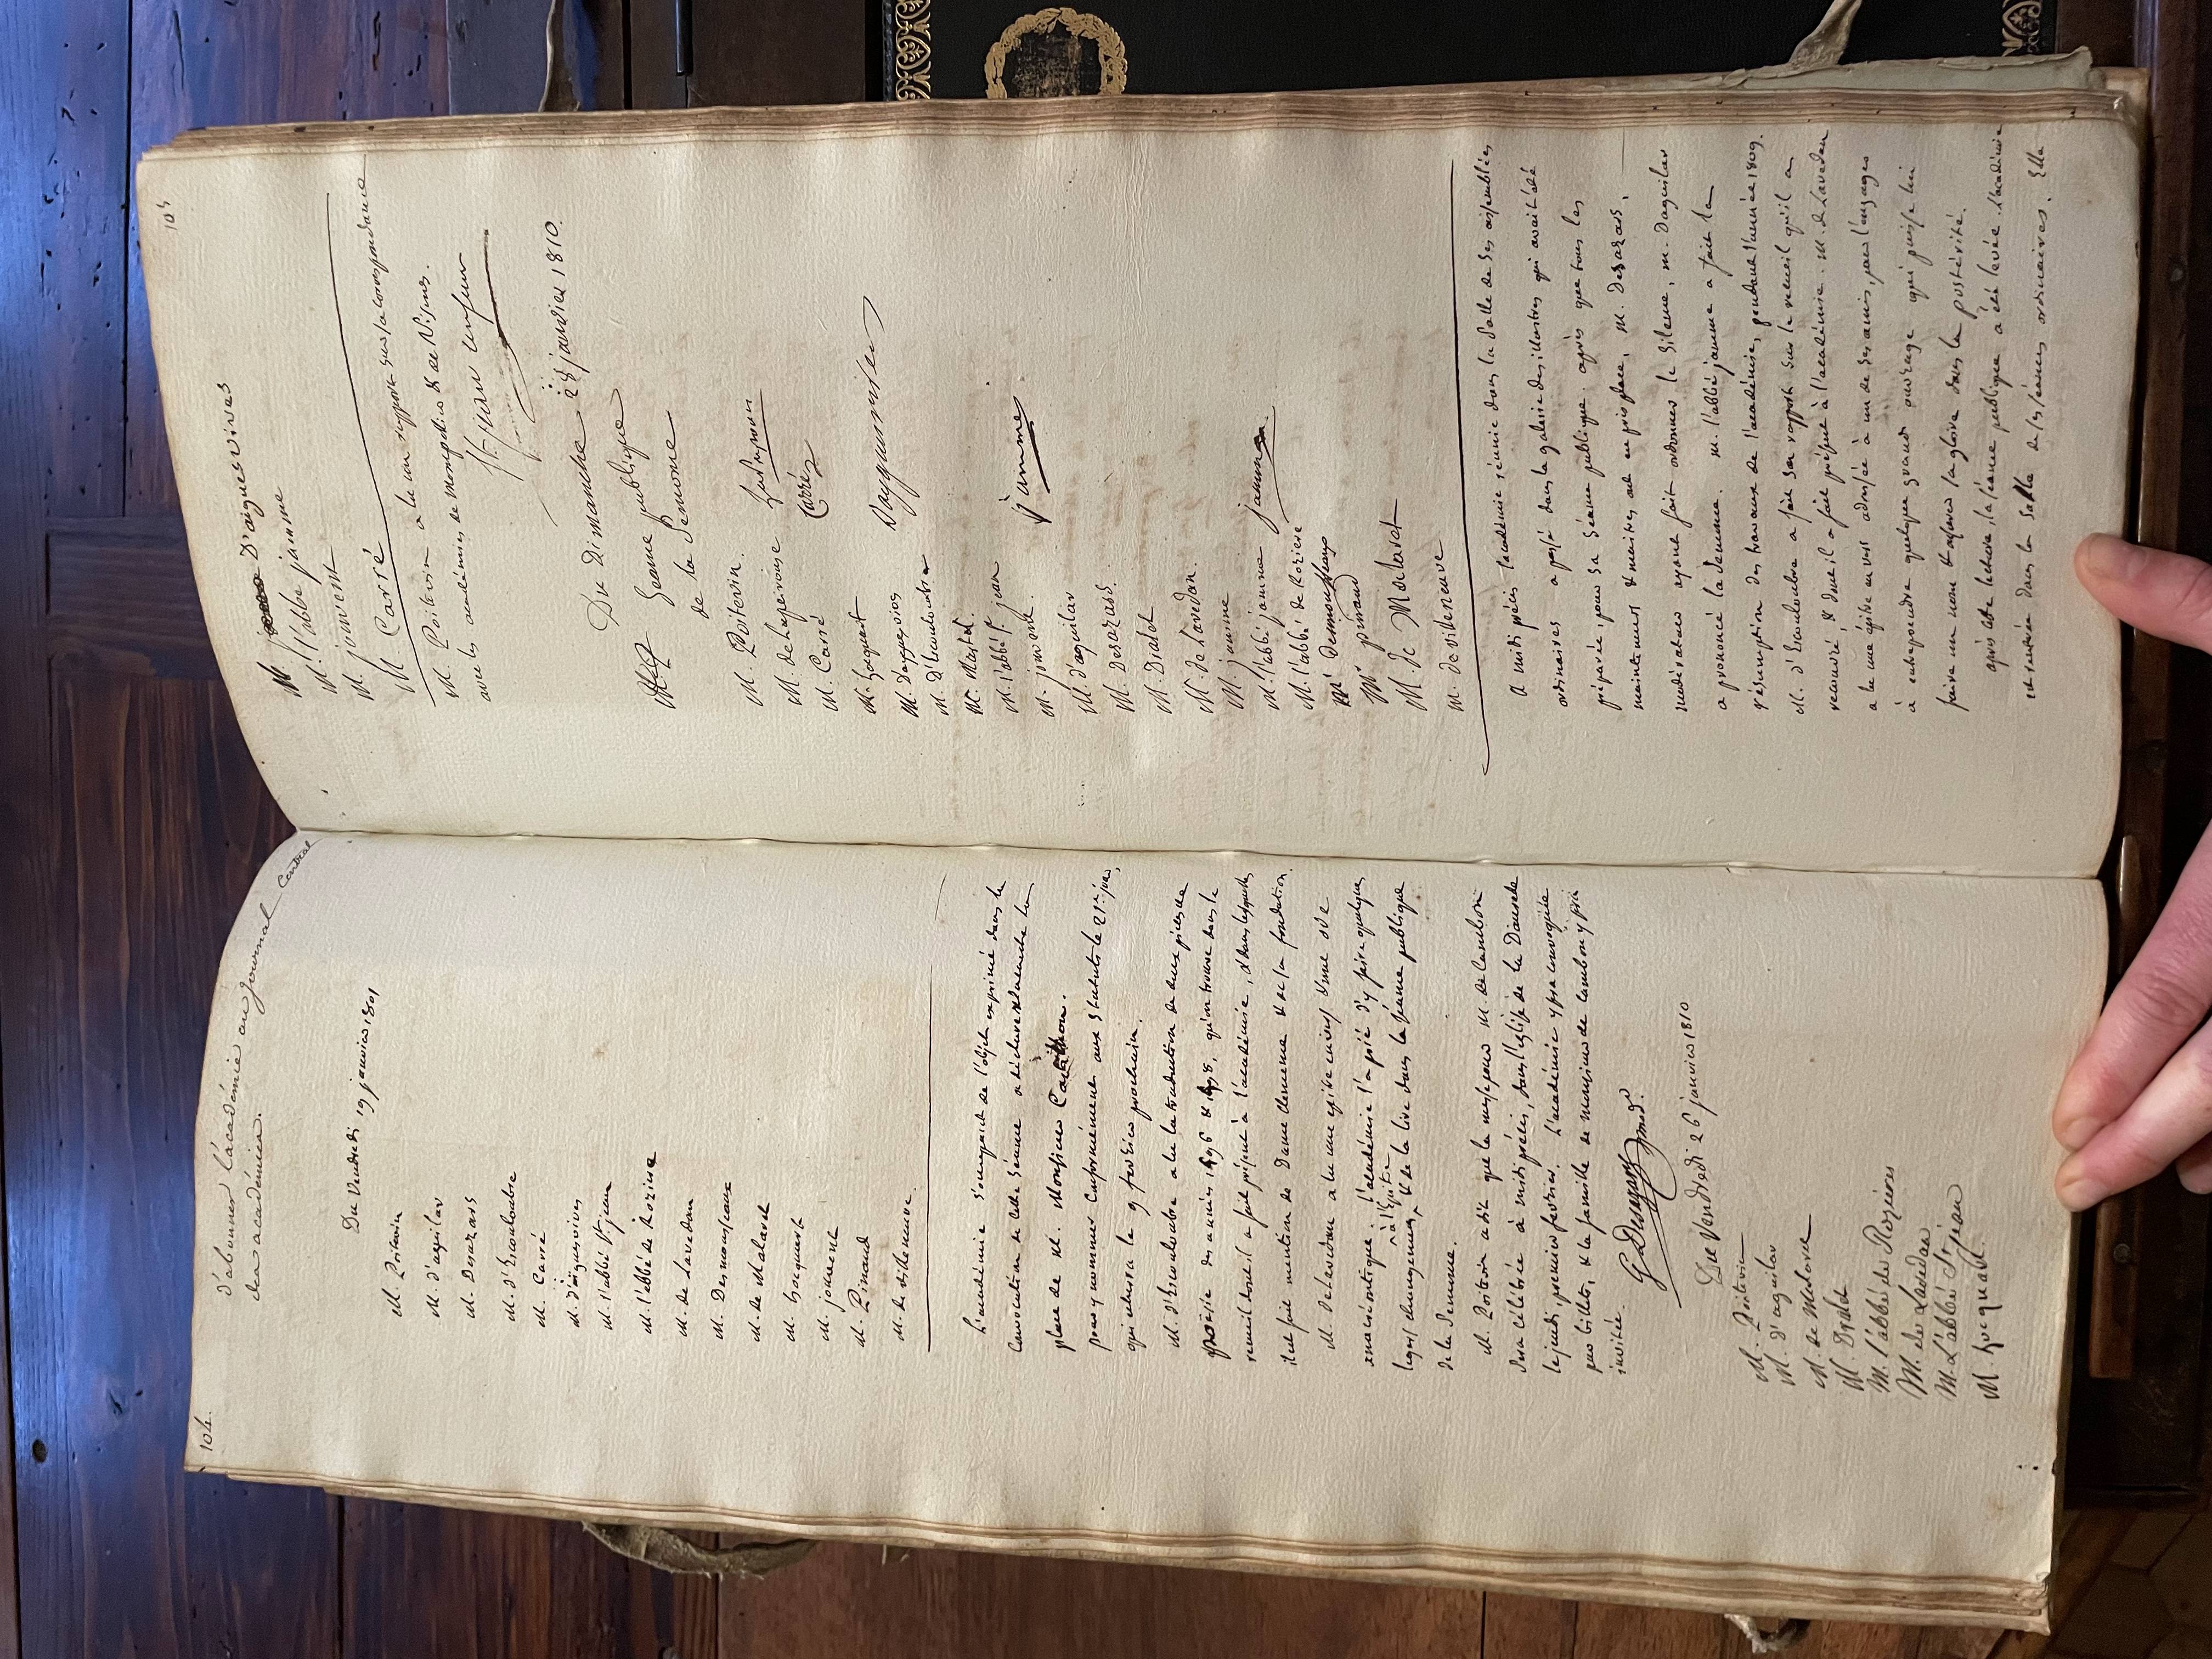 104.
d'abonner l'académie au journal central
des académies.
Du Vendredi 19 janvier 1801
M. Poitevin
M. d'aguilar
M. Desazars
M. d'Escouloubre
M. Carré
M. d'aiguesvives
M. l'abbé St jean
M. l'abbé de Roziere
M. de Lavedan
M. Desmousseaux
M. de Malaret
M. hocquart
M. jouvent
M. Pinaud
M. de villeneuve.
L'académie s'occupant de l'objet exprimé dans la
convocation de cette séance a déclaré vacante la
place de M. Monsieur
pour y nommer conformément aux statuts le 21e jour,
qui echerra le 9 fevrier prochain.
M. d'Escouloubre a lu la traduction de deux pieces de
poësie des années 1496 & 1498, qu'on trouve dans le
recueil dont il a fait présent à l'académie, & dans lesquelles
il est fait mention de Dame Clemence & de la fondation.
M. de Lavedan a lu une epitre en vers & une ode
anacréontique. l'académie l'a prié d'y faire quelques
legers changemens, à l'epitre & de la lire dans la séance publique
de la Semonce.
M. Poitevin a dit que la messe pour M. de Cambon
sera célébrée à midi précis, dans l'église de la Daurade
le jeudi, premier fevrier. L'académie y sera convoquée
par billets, & la famille de monsieur de Cambon y sera
invitée.
G Desazars mod.r
Du Vendredi 26 janvier 1810
M. Poitevin
M. d'aguilar
M. de Malaret
M. Dralet
M. l'abbé de Rozieres
M. de Lavedan
M. L'abbé St jean
M. hocquart.
105
M. D'aiguesvives
M. l'abbé jamme
M. jouvent
M. Carré
M. Poitevin a lu un rapport sur la correspondance
avec les académies de Montpellier & de Nismes.
St jean censeur
Du Dimanche 28 janvier 1810.
Seance publique
de la Semonce
M. Poitevin.
M. de Lapeirouse
M. Carré
Carré
M. hocquart
M. Dayguesvives
Dayguesvives
M. d'Escouloubre
M. Martel.
M. l'abbé St jean
M. jamme.
jamme
M. d'aguilar
M. Desazars.
M. Dralet
M. de Lavedan.
M. jamme
M. l'abbé jamme
jamme
M. l'abbé de Roziere
M. Desmousseaux
M. pinaud
M. de Malaret
M. de villeneuve
A midi précis l'académie réunie dans la salle de ses assemblées
ordinaires a passé dans la galerie des illustres qui avait été
préparée pour sa séance publique. après que tous les
mainteneurs & maitres ont eu pris place, M. Desazars,
modérateur ayant fait ordonner le silence, M. Daguilar
a prononcé la Semonce. M. l'abbé jamme a fait la
résomption des travaux de l'académie, pendant l'année 1809.
M. d'Escouloubre a fait son rapport sur le recueil qu'il a
recouvré, & dont il a fait présent à l'académie. M. de Lavedan
a lu une épitre en vers adressée à un de ses amis, pour l'engager
à entreprendre quelque grand ouvrage qui puisse lui
faire un nom & assurer sa gloire dans la postérité.
après cette lecture, la séance publique a été levée. L'académie
est rentrée dans la salle de ses séances ordinaires. Elle